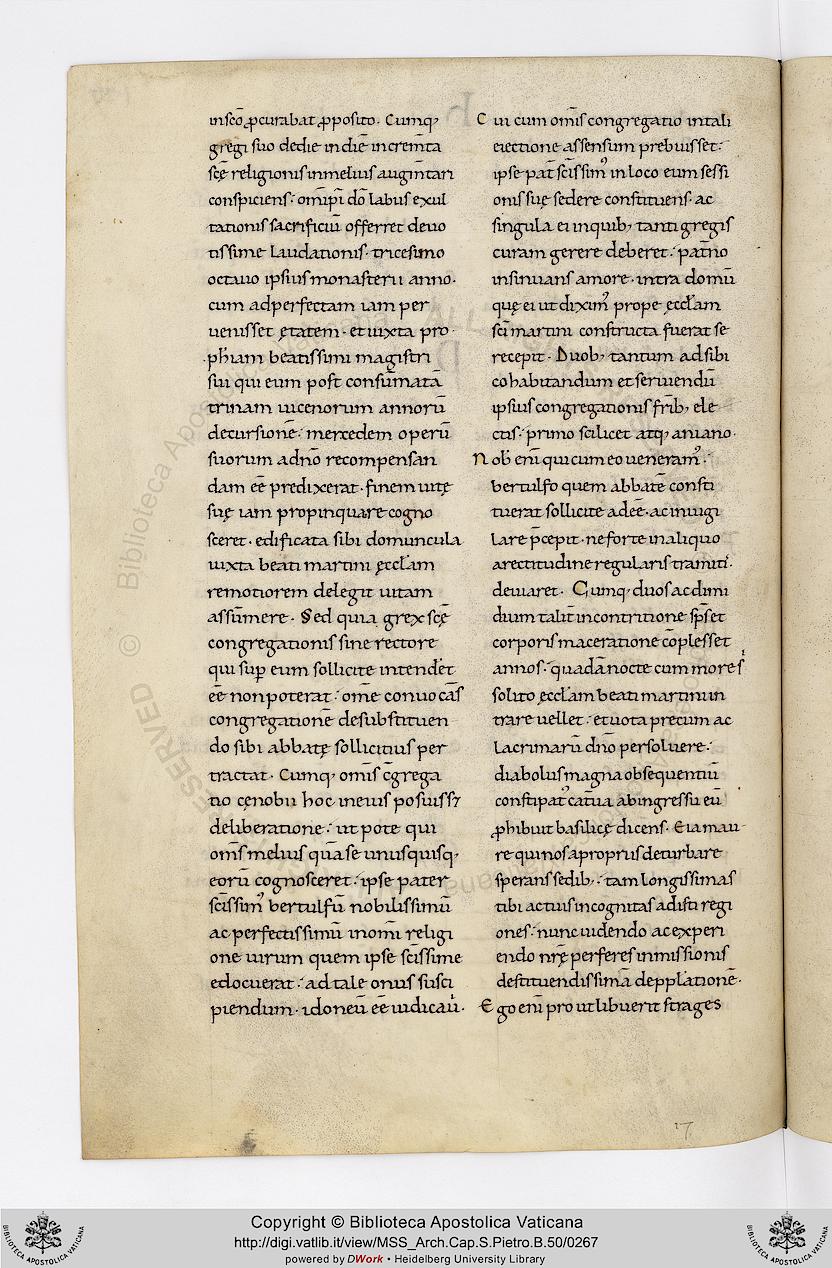 insc̄o ꝓcurabat ꝓposito. Cumq;
gregi suo dedie indiē increm̄ta
sc̄ę religionis inmelius augm̄tari
conspiciens: om̄ip̄i dō labus exul
tationis sacrificiū offerret deuo
tissime laudationis. tricesimo
octauo ipsius monasterii anno.
cum adperfectam iam per
uenisset ętatem. et iuxta pro
phiam beatissimi magistri
sui qui eum post consūmatā
trinam uicenorum annorū
decursionē: mercedem operū
suorum adnō recompensan
dam eē predixerat. finem uitę
suę iam propinquare cogno
sceret. edificata sibi domuncula
iuxta beati martini ęccl̄am
remotiorem delegit uitam
assūmere. Sed quia grex sc̄ę
congregationis sine rectore
qui suꝑ eum sollicite intenderet
eē non poterat: om̄e conuocans
congregationē desubstituen
do sibi abbatę sollicitius per
tractat. Cumq; om̄is c̄grega
tio cęnobii hoc ineius posuiss&
deliberatione: ut pote qui
om̄s melius quā se unusquisq;
eorū cognosceret: ipse pater
sc̄issim' bertulfū nobilissimū
ac perfectissimū inom̄i religi
one uirum quem ipse sc̄issime
edocuerat: ad tale onus susci
piendum. idoneū eē iudicaū.
Cui cum om̄is congregatio intali
eiectione assensum prebuisset:
ipse pat̄ sc̄issim' in loco eum sessi
onis suę sedere constituens. ac
singula ei inquib; tanti gregis
curam gerere deberet: pat̄no
insinuans amore. intra domū
quę ei ut dixim' prope ęccl̄am
sc̄i martini constructa fuerat se
recepit. Duob; tantum ad sibi
cohabitandum et seruiendū
ipsius congregationis fr̄ib; ele
ctis: primo scilicet atq; aniano.
nob̄ eni qui cum eo ueneram':
bertulfo quem abbatē consti
tuerat sollicite adeē. ac inuigi
lare p̄cepit. ne forte inaliquo
arectitudine regularis tramiti.
deuiaret. Cumq; duos ac dimi
dium talit̄ incontritione sp̄s et
corporis maceratione cōplesset
annos: quadā nocte cum more s
solito ęccl̄am beati martini in
trare uellet: et uota precum ac
lacrimarū dn̄o persoluere:
diabolus magna obsequentiū
constipat' cat̄ua abingressu eū
ꝓhibuit basilicę dicens. Eia mau
re qui nos a propriis deturbare
sperans sedib;: tam longissimas
tibi ac tuis incognitas adisti regi
ones: nunc uidendo ac experi
endo nr̄ę perferes inmissionis
destituendissimā depplationē.
Ego eni pro ut libuerit strages
17
Copyright © Biblioteca Apostolica Vaticana
http://digi.vatlib.it/view/MSS_Arch.Cap.S.Pietro.B.50/0267
powered by DWork • Heidelberg University Library